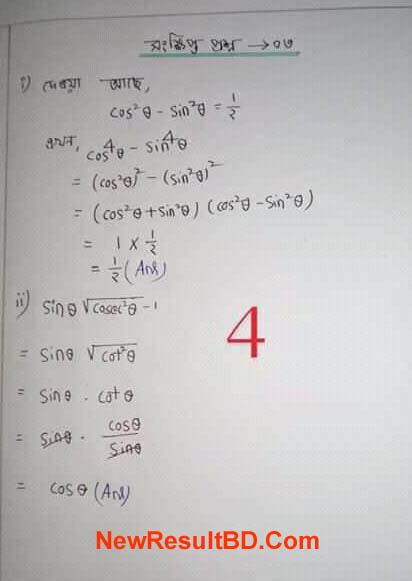 সংক্ষিপ্ত প্রশ্ন → ০৩
i) দেওয়া আছে,
cos²θ - sin²θ = 1/2
এখন, cos⁴θ - sin⁴θ
= (cos²θ)² - (sin²θ)²
= (cos²θ + sin²θ) (cos²θ - sin²θ)
= 1 × 1/2
= 1/2 (Ans)
ii) sinθ √cosec²θ - 1
= sinθ √cot²θ
= sinθ · cotθ
= sinθ · cosθ/sinθ
= cosθ (Ans)
4
NewResultBD.Com